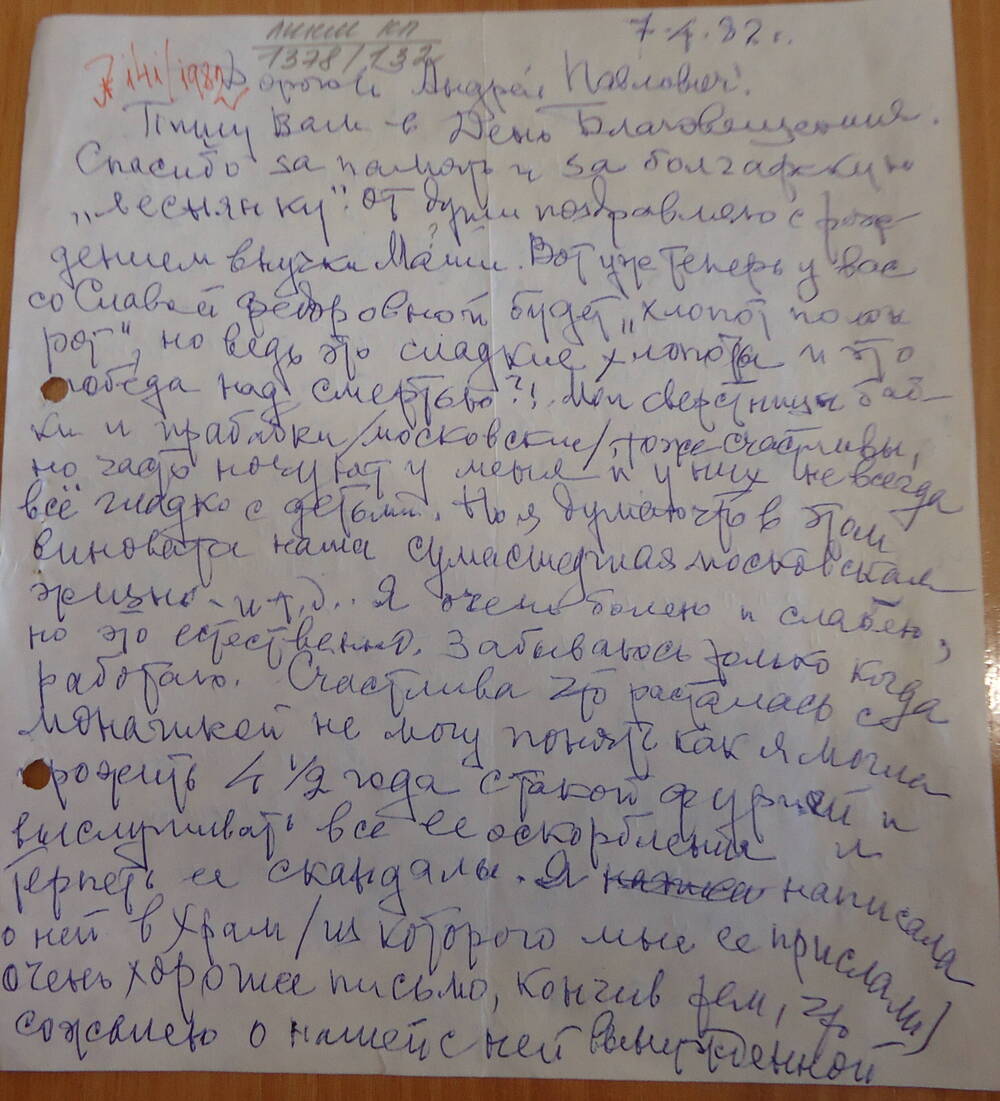 ЛИКМ КП
1378/132
7.4.82 г.
Дорогой Андрей Павлович!
Пишу Вам в День Благовещения.
Спасибо за память и за болгарскую
„веснянку". От души поздравляю с рож-
дением внучки Маши. Вот уже теперь у вас
со Славой Фёдоровной будет „хлопот полон
рот", но ведь это сладкие хлопоты и это
победа над смертью?! Мои сверстницы баб-
ки и прабабки /московские/ тоже счастливы,
но часто ночуют у меня и у них не всегда
всё гладко с детьми. Но я думаю что в этом
виновата наша сумасшедшая московская
жизнь и т.д.. Я очень болею и слабею,
но это естественно. Забываюсь только когда
работаю. Счастлива что рассталась с
монашкой не могу понять как я могла
прожить 4 1/2 года с такой фурией и
выслушивать все её оскорбления и
терпеть её скандалы. Я написала
о ней в Храм /из которого мне её прислали/
очень хорошее письмо, кончив тем, что
сожалею о нашей с ней вынужденной